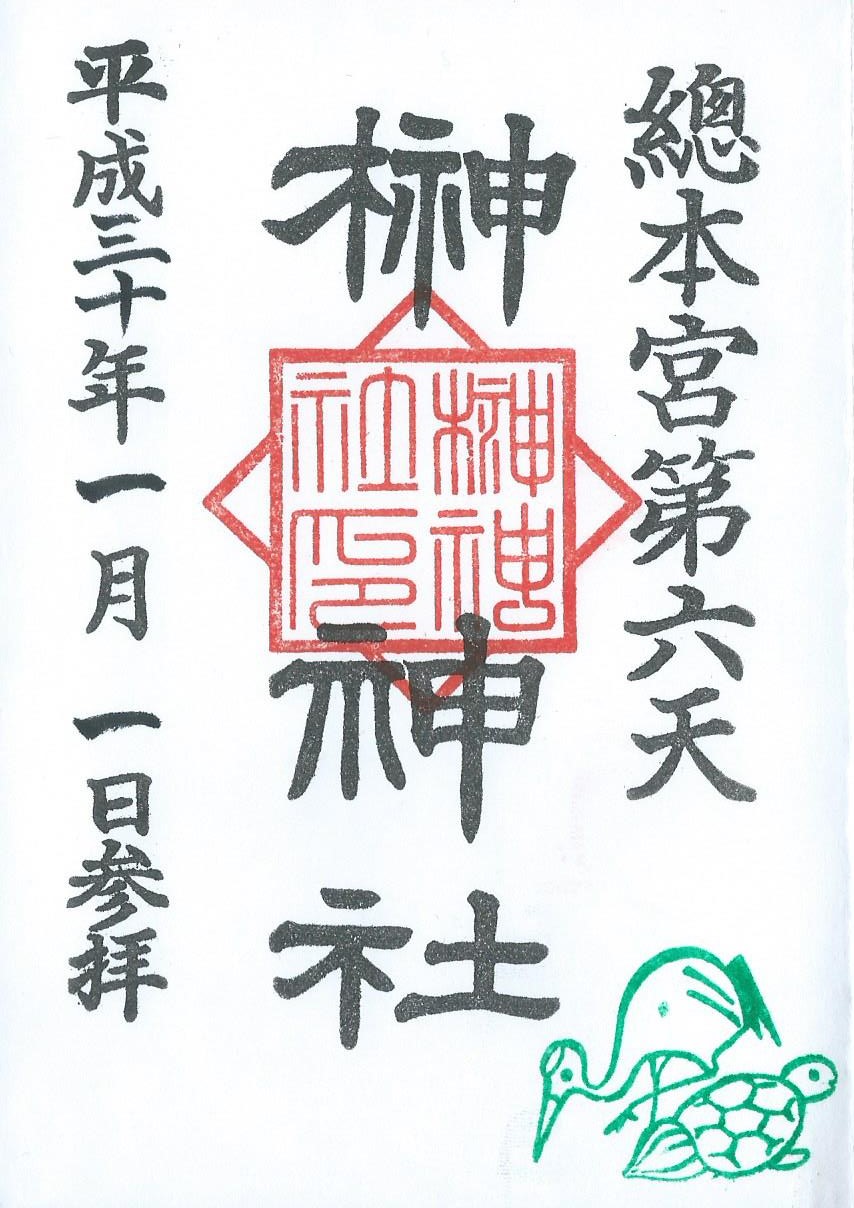 總本宮第六天
榊神社
榊神社印
平成三十年一月一日参拝